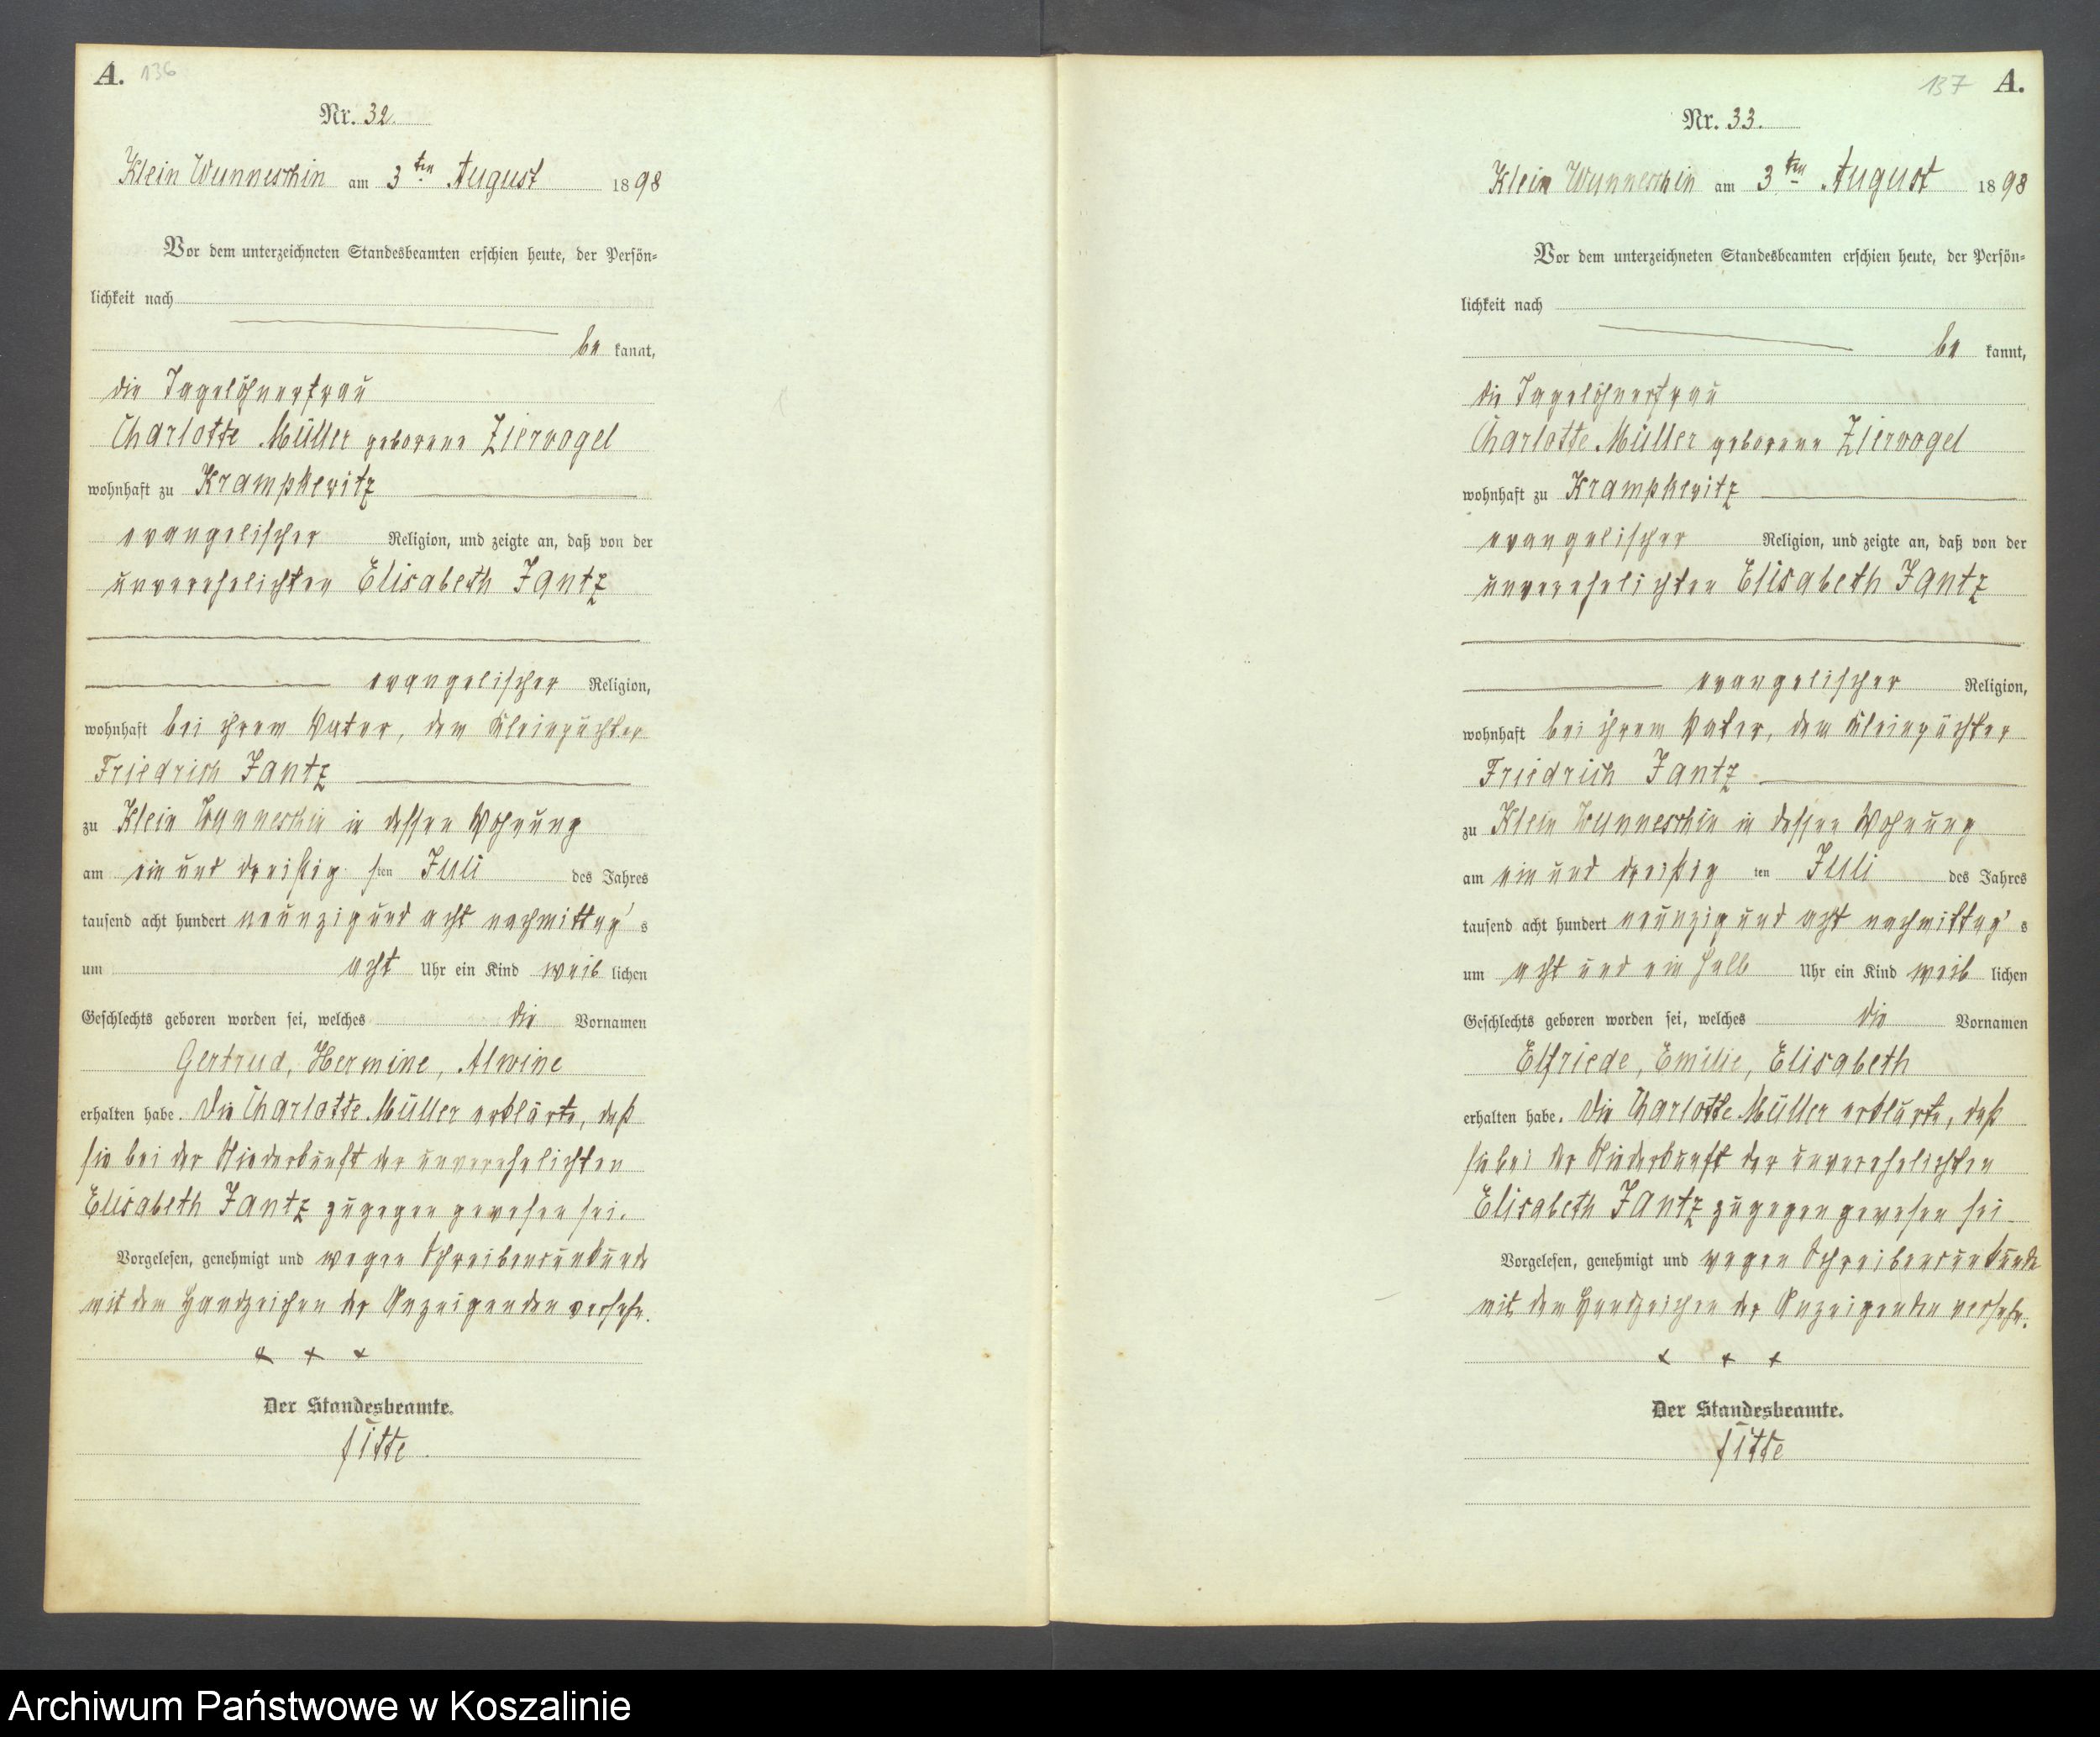 A. 136
Nr. 32.
Klein Wunneschin am 3ten August 1898
Vor dem unterzeichneten Standesbeamten erschien heute, der Persön-
lichkeit nach
be kannt,
die Tagelöhnerfrau
Charlotte Müller geborene Ziervogel
wohnhaft zu Krampkewitz
evangelischer Religion, und zeigte an, daß von der
unverehelichten Elisabeth Jantz
evangelischer Religion,
wohnhaft bei ihrem Vater, dem Kleinpächter
Friedrich Jantz
zu Klein Wunneschin in dessen Wohnung
am ein und dreißig sten Juli des Jahres
tausend acht hundert neunzig und acht nachmittag's
um acht Uhr ein Kind weib lichen
Geschlechts geboren worden sei, welches die Vornamen
Gertrud, Hermine, Alwine
erhalten habe. Die Charlotte Müller erklärte, daß
sie bei der Niederkunft der unverehelichten
Elisabeth Jantz zugegen gewesen sei.
Vorgelesen, genehmigt und wegen Schreibensunkunde
mit dem Handzeichen der Anzeigenden versehn.
x + x
Der Standesbeamte.
Fitte.
137 A.
Nr. 33.
Klein Wunneschin am 3ten August 1898
Vor dem unterzeichneten Standesbeamten erschien heute, der Persön-
lichkeit nach
be kannt,
die Tagelöhnerfrau
Charlotte Müller geborene Ziervogel
wohnhaft zu Krampkewitz
evangelischer Religion, und zeigte an, daß von der
unverehelichten Elisabeth Jantz
evangelischer Religion,
wohnhaft bei ihrem Vater, dem Kleinpächter
Friedrich Jantz
zu Klein Wunneschin in dessen Wohnung
am ein und dreißig ten Juli des Jahres
tausend acht hundert neunzig und acht nachmittag's
um acht und ein halb Uhr ein Kind weib lichen
Geschlechts geboren worden sei, welches die Vornamen
Elfriede, Emilie, Elisabeth
erhalten habe. Die Charlotte Müller erklärte, daß
sie bei der Niederkunft der unverehelichten
Elisabeth Jantz zugegen gewesen sei
Vorgelesen, genehmigt und wegen Schreibensunkunde
mit dem Handzeichen der Anzeigenden versehn.
x x x
Der Standesbeamte.
Fitte
Archiwum Państwowe w Koszalinie